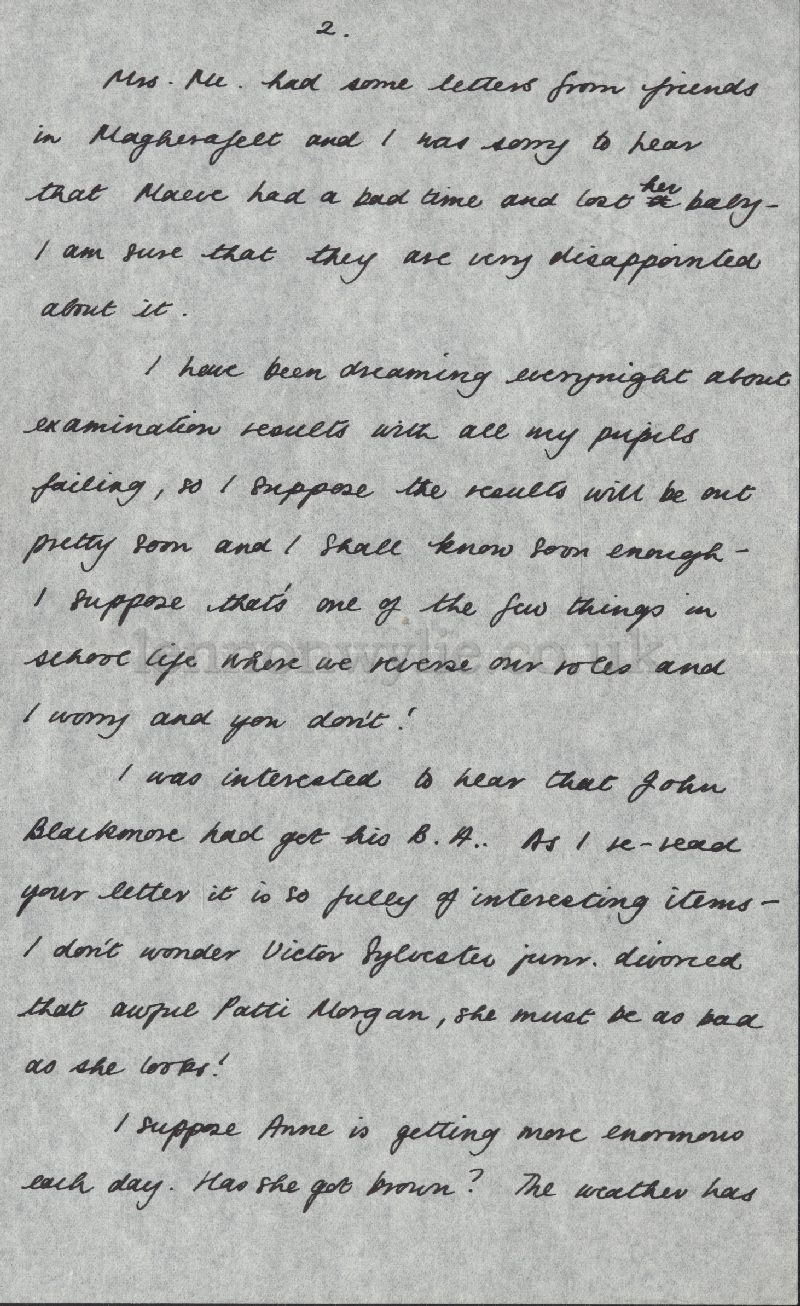 2.
Mrs. Mc. had some letters from friends
in Magherafelt and I was sorry to hear
that Maeve had a bad time and lost her baby -
I am sure that they are very disappointed
about it.
I have been dreaming everynight about
examination results with all my pupils
failing, so I suppose the results will be out
pretty soon and I shall know soon enough -
I suppose that's one of the few things in
school life where we reverse our roles and
I worry and you don't!
lennonwylie.co.uk
I was interested to hear that John
Blackmore had got his B.A.. As I re-read
your letter it is so fully of interesting items -
I don't wonder Victor Sylvester junr. divorced
that awful Patti Morgan, she must be as bad
as she looks!
I suppose Anne is getting more enormous
each day. Has she got brown? The weather has